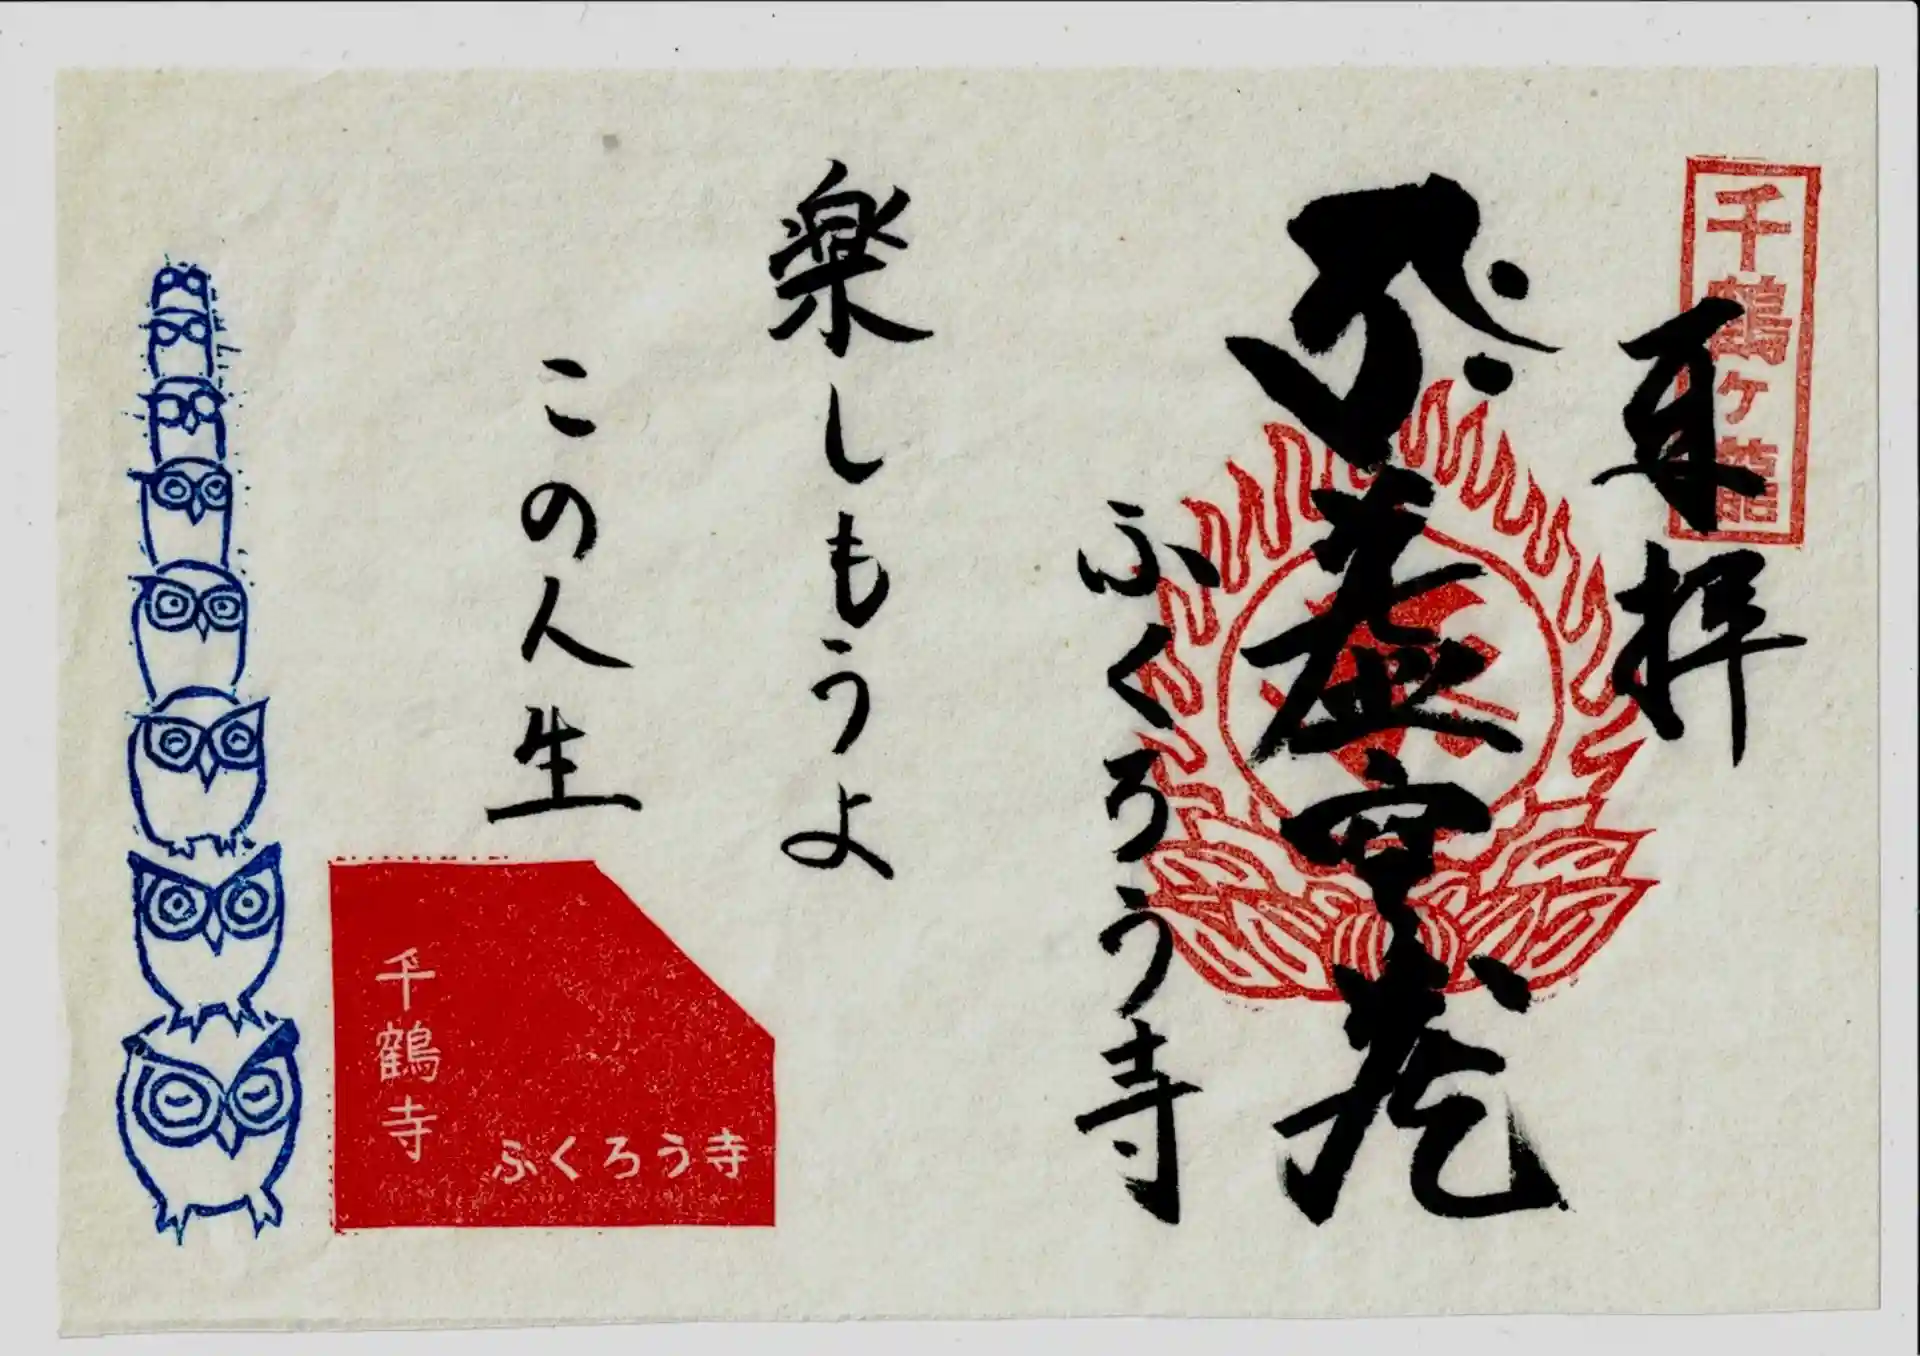 千鶴ヶ
拝
虚空蔵
ふくろう寺
楽しもうよ
この人生
千鶴寺
ふくろう寺